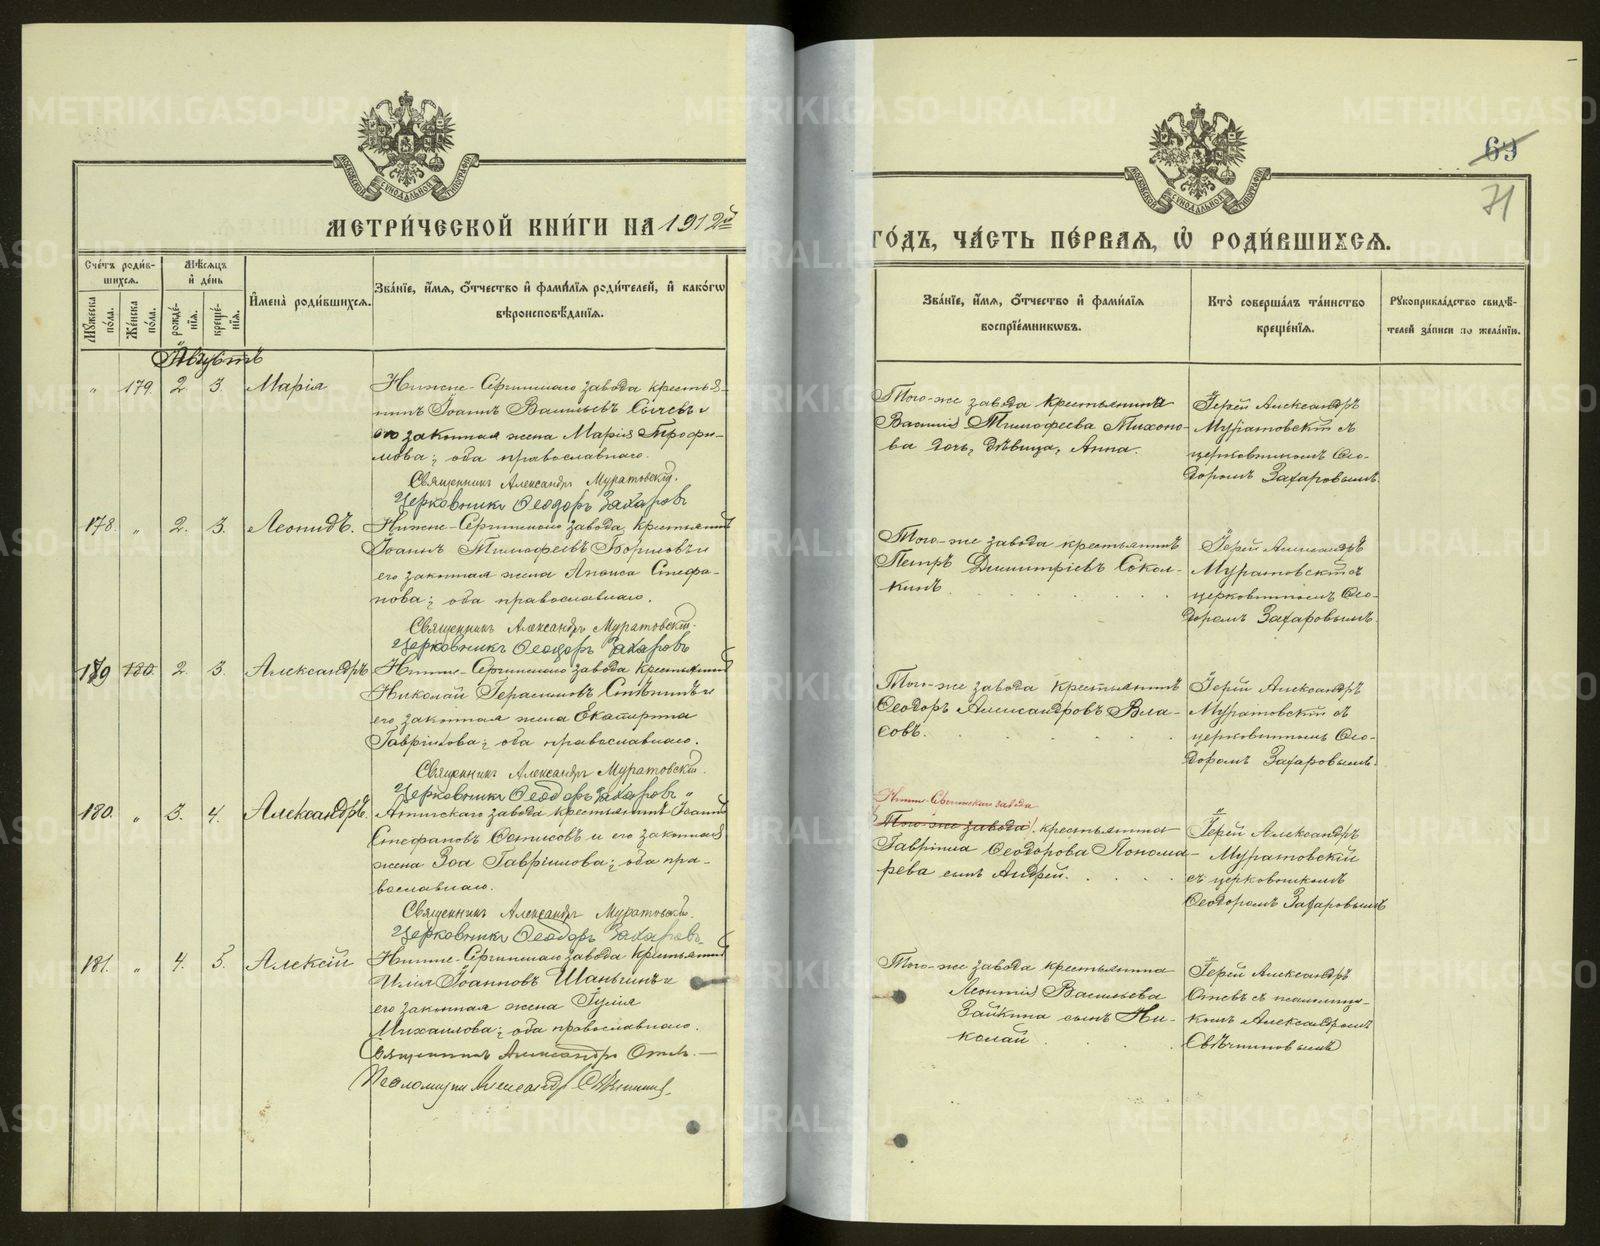 69
71
МЕТРИ́ЧЕСКОЙ КНИ́ГИ НА 1912й
ГО́ДЪ, ЧА́СТЬ ПЕ́РВАЯ, Ѡ҆ РОДИ́ВШИХСЯ.
Сче́тъ роди́в-
шихся.
Мꙋ́жеска по́ла.
Же́нска по́ла.
Мѣ́сяцъ
и҆ де́нь
рожде́-
нїя.
креще́-
нїя.
И҆мена̀ роди́вшихся.
Зва́нїе, и҆́мя, ѻ҆́тчество и҆ фами́лїя роди́телей, и҆ како́гѡ
вѣроисповѣ́данїя.
Зва́нїе, и҆́мя, ѻ҆́тчество и҆ фами́лїя
воспрїе́мникѡвъ.
Кто̀ соверша́лъ та́инство
креще́нїя.
Рꙋкоприкла́дство свидѣ́-
телей за́писи по жела́нїю.
Августъ
„ 179. 2. 3. Марія
Нижне-Сергинскаго завода крестья-
нинъ Іоаннъ Васильевъ Сычевъ и
его законная жена Марія Трофи-
мова; оба православнаго.
Священникъ Александръ Муратовскій.
Церковникъ Ѳеодоръ Захаровъ
Того-же завода крестьянина
Василія Тимофеева Тихоно-
ва дочь, дѣвица, Анна.
Іерей Александръ
Муратовскій съ
церковникомъ Ѳео-
доромъ Захаровымъ.
178. „ 2. 3. Леонидъ.
Нижне-Сергинскаго завода, крестьянинъ
Іоаннъ Тимофеевъ Борисовъ и
его законная жена Анисья Стефа-
нова; оба православнаго.
Священникъ Александръ Муратовскій.
Церковникъ Ѳеодоръ Захаровъ
Того-же завода крестьянинъ
Петръ Димитріевъ Сокол-
кинъ.
Іерей Александръ
Муратовскій съ
церковникомъ Ѳео-
доромъ Захаровымъ.
179 180. 2. 3. Александръ
Нижне-Сергинскаго завода крестьянинъ
Николай Герасимовъ Стѣнинъ и
его законная жена Екатерина
Гаврілова; оба православнаго.
Священникъ Александръ Муратовскій.
Церковникъ Ѳеодоръ Захаровъ
Того-же завода крестьянинъ
Ѳеодоръ Александровъ Вла-
совъ.
Іерей Александръ
Муратовскій съ
церковникомъ Ѳео-
доромъ Захаровымъ.
180. „ 3. 4. Александръ.
Атигскаго завода крестьянинъ Іоаннъ
Стефановъ Фотисовъ и его законная
жена Зоа Гаврилова; оба пра-
вославнаго.
Священникъ Александръ Муратовскій.
Церковникъ Ѳеодоръ Захаровъ.
Нижне-Сергинскаго завода
Того-же завода, крестьянина
Гавріила Ѳеодорова Понома-
рева сынъ Андрей.
Іерей Александръ
Муратовскій
съ церковникомъ
Ѳеодоромъ Захаровымъ
181. „ 4. 5. Алексій
Нижне-Сергинскаго завода крестьянинъ
Илія Іоанновъ Шаньгинъ и
его законная жена Іулія
Михаилова; оба православнаго.
Священникъ Александръ
Псаломщикъ Александръ
Того-же завода крестьянина
Леонтія Васильева
Зайкина сынъ Ни-
колай
Іерей Александръ
съ псаломщи-
комъ Александромъ
Свѣчниковымъ